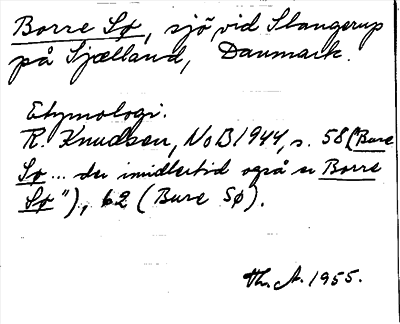 Borre Sø, sjö vid Slangerup
på Sjælland, Danmark.
Etymologi.
R. Knudsen, NoB 1944, s. 58 ("Bure
Sø... der imidlertid også er Borre
Sø"), 62 (Bure Sø).
Th. A. 1955.